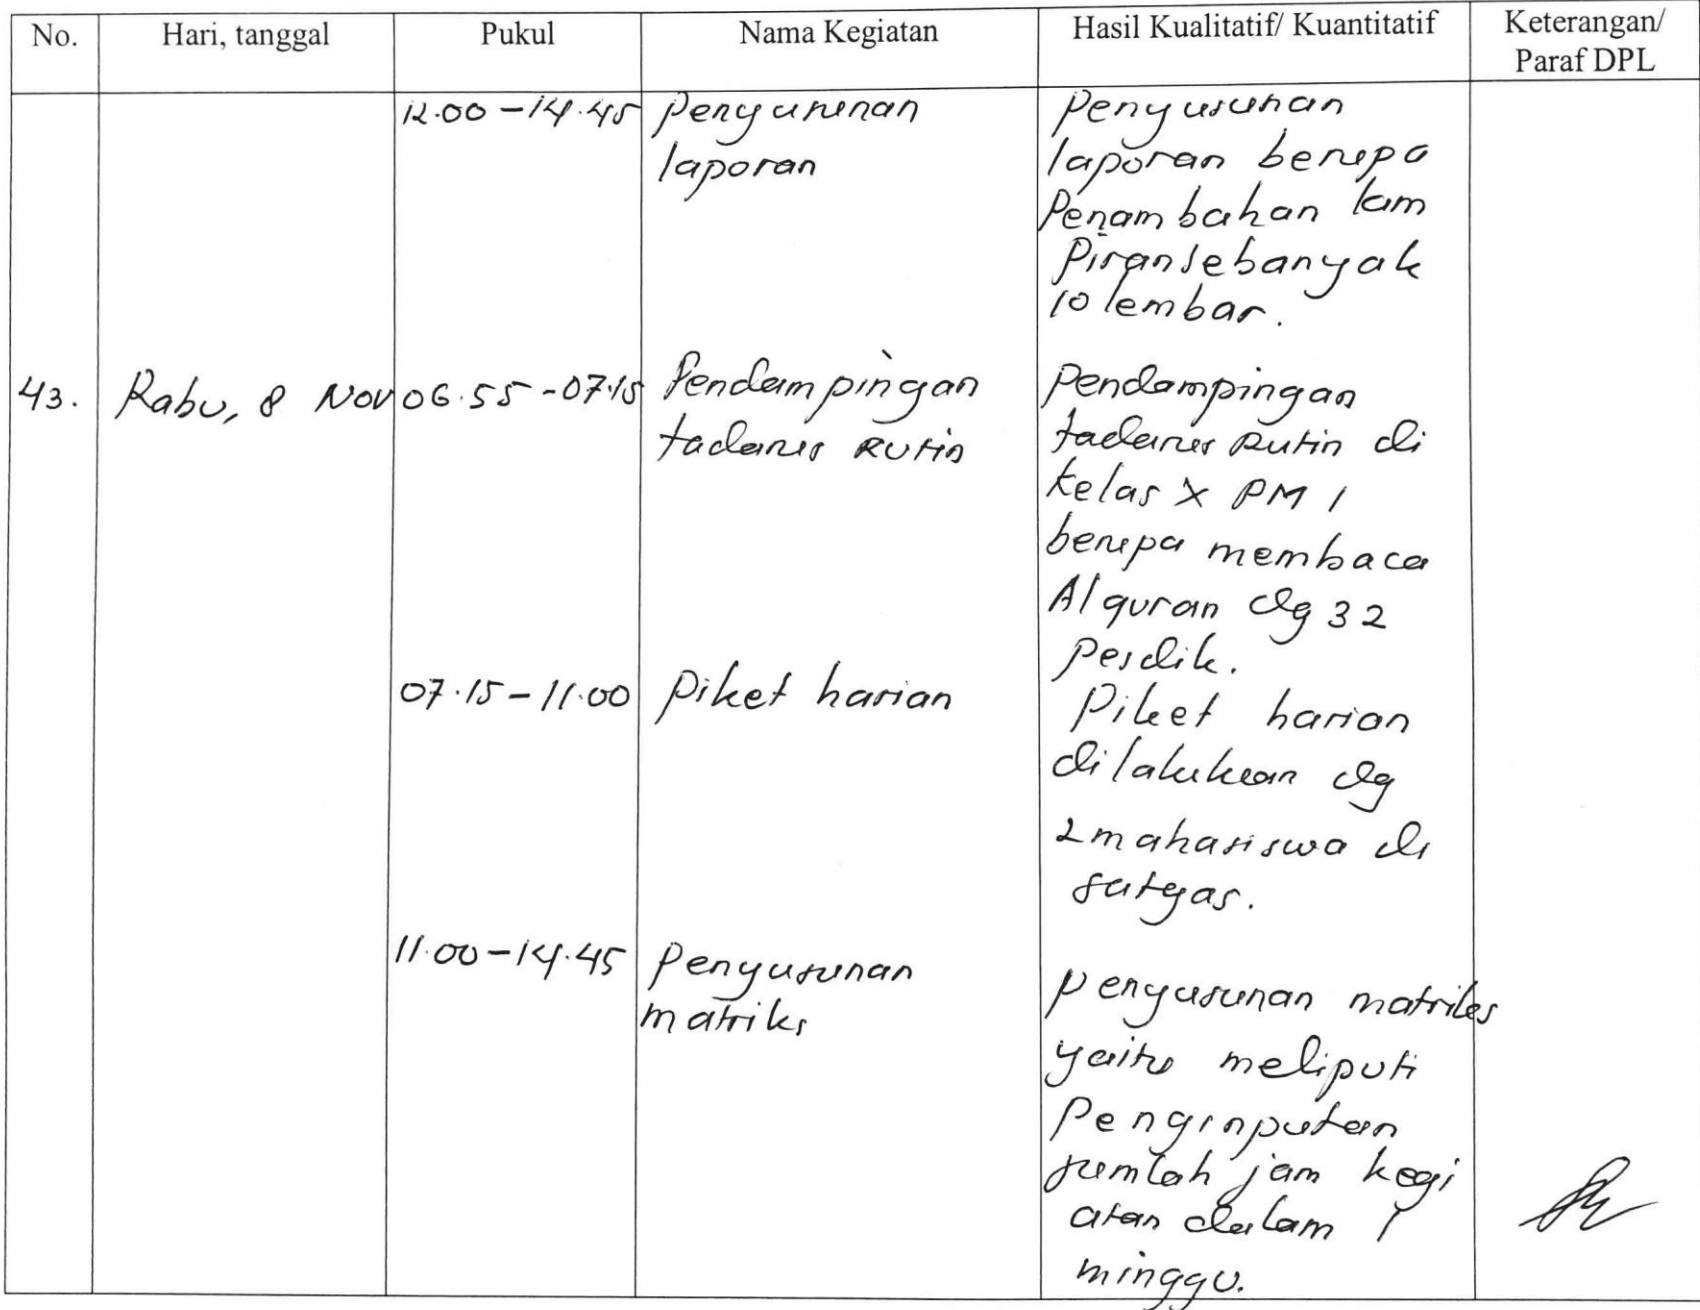 No. Hari, tanggal Pukul Nama Kegiatan Hasil Kualitatif/ Kuantitatif Keterangan/ Paraf DPL
12.00 - 14.45 Penyusunan
laporan
Penyusunan
laporan berupa
Penambahan lam
Piran sebanyak
10 lembar.
43. Rabu, 8 Nov 06.55 - 07.15 Pendampingan
tadarus Rutin
Pendampingan
tadarus Rutin di
kelas X PM 1
berupa membaca
Al quran dg 32
Pesdik.
07.15 - 11.00 Piket harian
Piket harian
dilakukan dg
2 mahasiswa di
satgas.
11.00 - 14.45 Penyusunan
matriks
penyusunan matriks
yaitu meliputi
Penginputan
jumlah jam kegi
atan dalam 1
minggu.